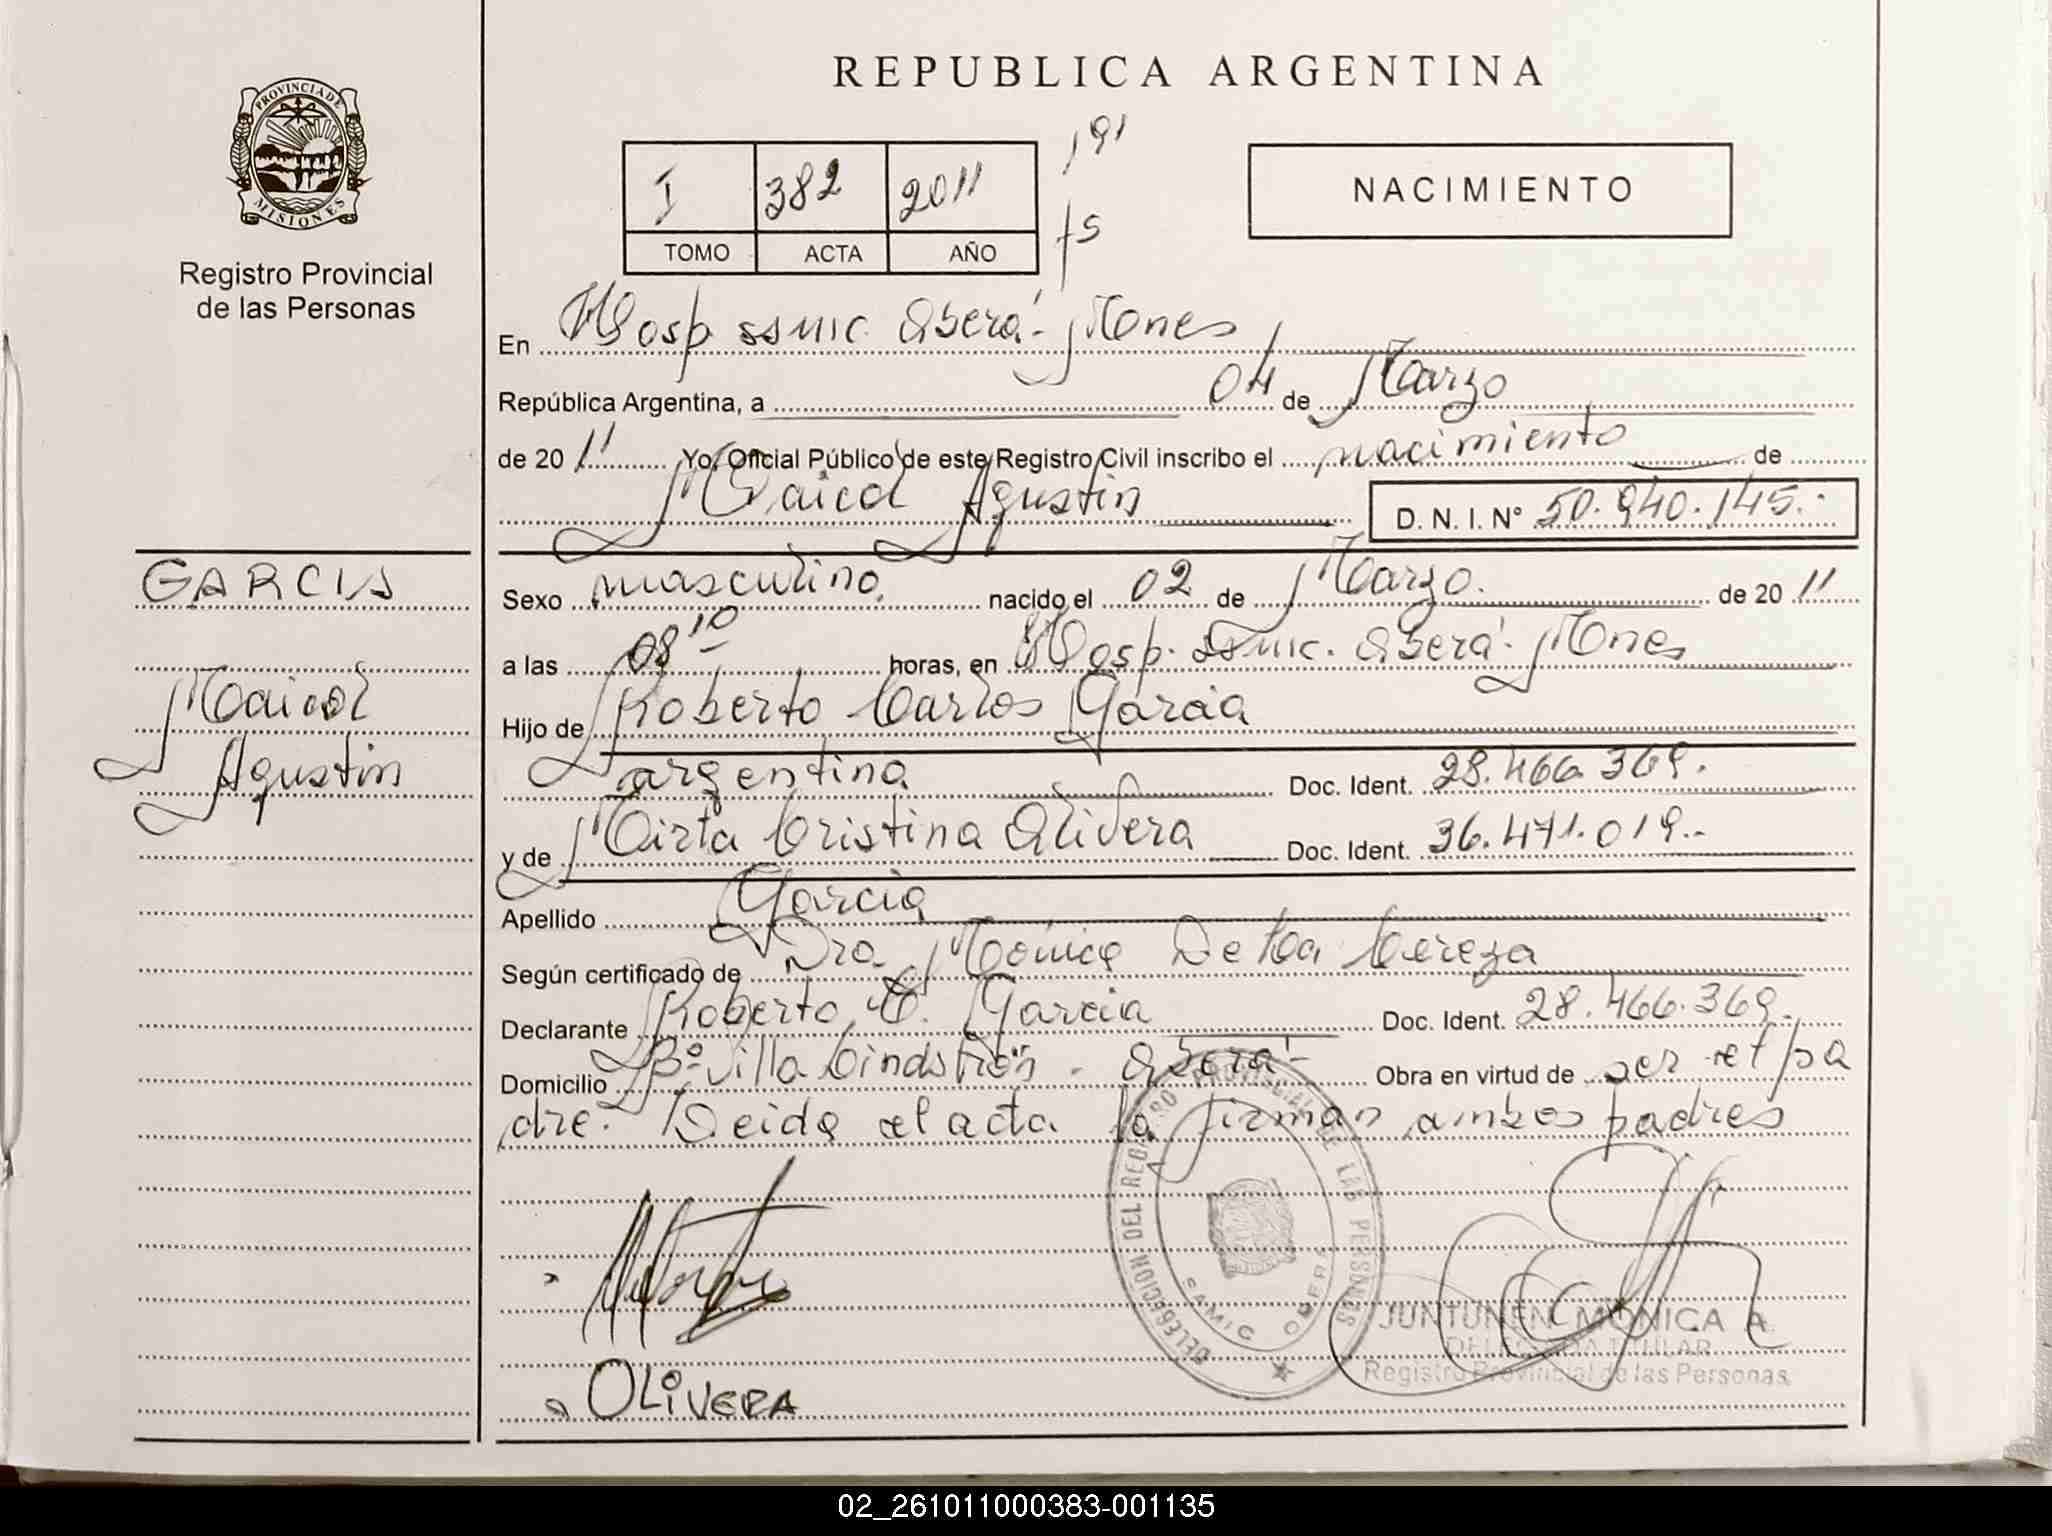 REPUBLICA ARGENTINA
PROVINCIA DE MISIONES
Registro Provincial
de las Personas
I 382 2011
TOMO ACTA AÑO
191
fs
NACIMIENTO
En Hosp SSMIC. Oberá - Mnes
República Argentina, a 04 de Marzo
de 2011 Yo, Oficial Público de este Registro Civil inscribo el nacimiento de
Maicol Agustin D. N. I. Nº 50.940.145.-
GARCIA
Maicol
Agustin
Sexo masculino. nacido el 02 de Marzo. de 2011
a las 08 10 horas, en Hosp. SSMIC. Oberá - Mnes
Hijo de Roberto Carlos Garcia
argentina Doc. Ident. 28.466.369.
y de Mirta Cristina Olivera Doc. Ident. 36.471.019.-
Apellido Garcia
Según certificado de Dra. Mónica De La Cereza
Declarante Roberto C. Garcia Doc. Ident. 28.466.369.
Domicilio Bº Villa Lindstron - Oberá - Obra en virtud de ser el pa
dre. Leida el acta la firman ambos padres
DELEGACION DEL REGISTRO PROVINCIAL DE LAS PERSONAS
SAMIC OBERA
JUNTUNEN MONICA A.
DELEGADA TITULAR
Registro Provincial de las Personas
OLIVERA
02_261011000383-001135